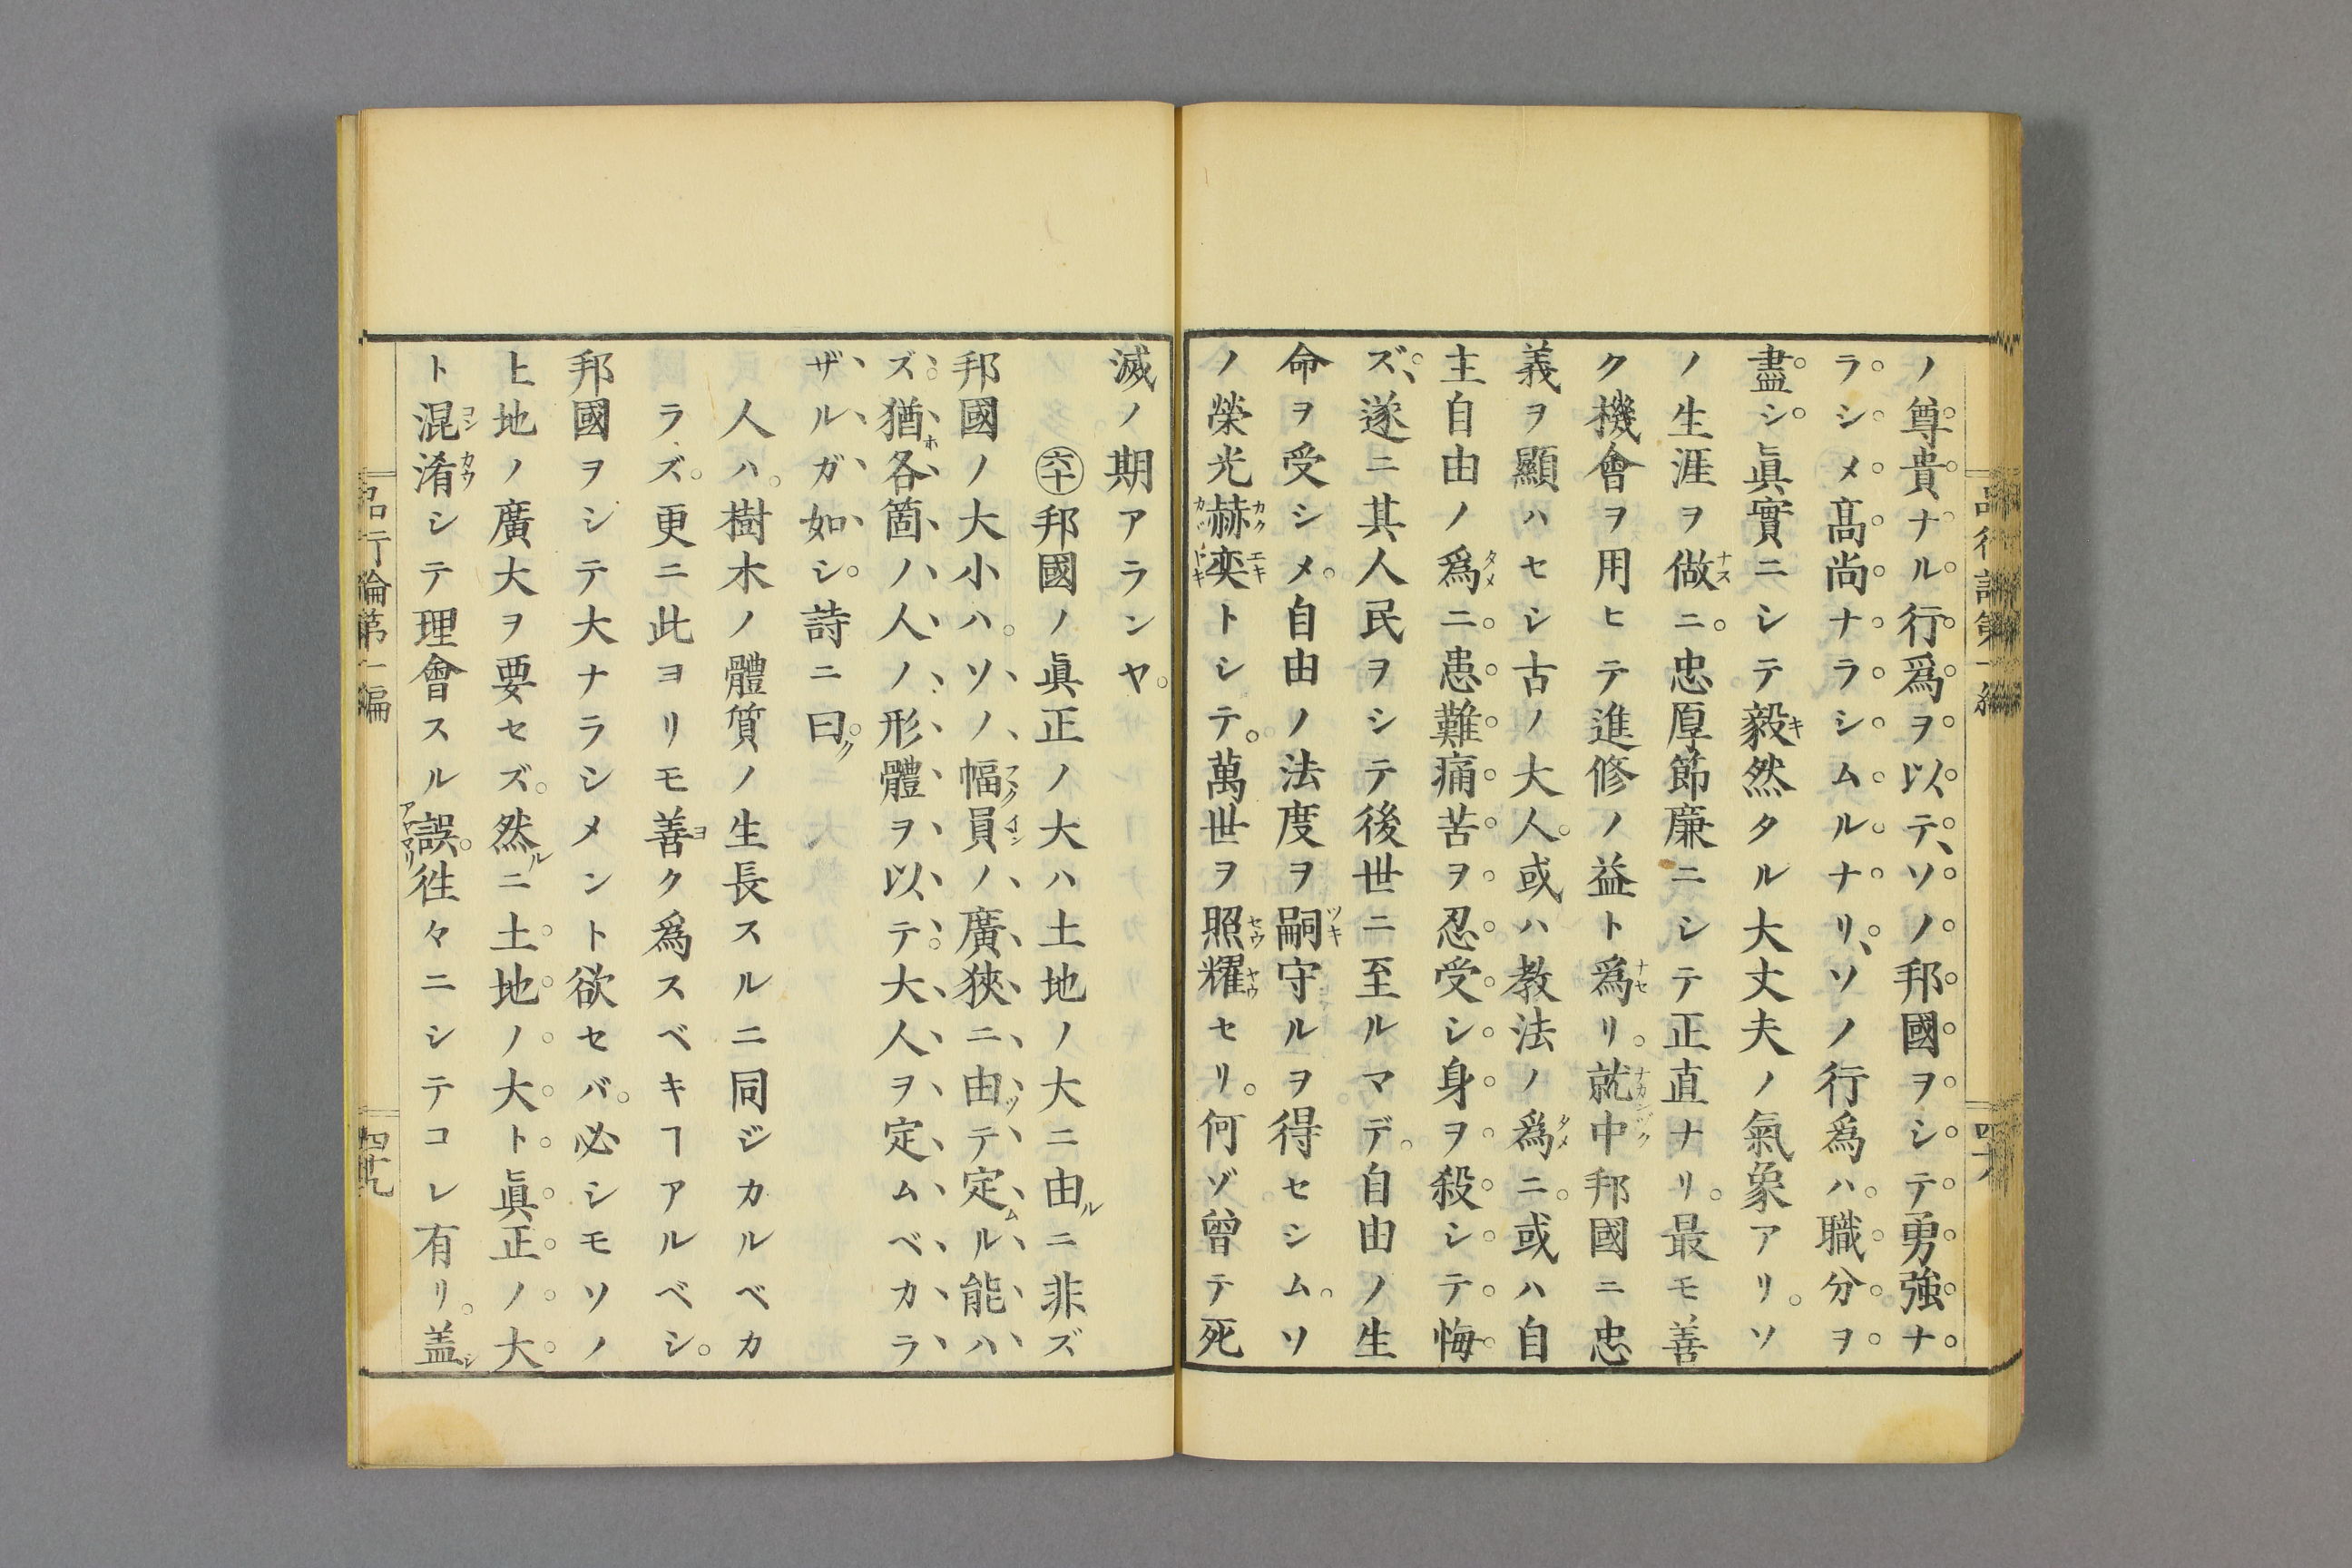 ノ尊貴ナル行爲ヲ以テ、ソノ邦國ヲシテ勇強ナ
ラシメ高尚ナラシムルナリ、ソノ行爲ハ職分ヲ
盡シ眞實ニシテ毅然タル大丈夫ノ氣象アリ。ソ
ノ生涯ヲ做ニ。忠厚節廉ニシテ正直ナリ。最モ善
ク機會ヲ用ヒテ進修ノ益ト爲リ。就中邦國ニ忠
義ヲ顯ハセシ古ノ大人。或ハ教法ノ爲ニ。或ハ自
主自由ノ爲ニ患難痛苦ヲ忍受シ身ヲ殺シテ悔
ズ、遂ニ其人民ヲシテ後世ニ至ルマデ。自由ノ生
命ヲ受シメ。自由ノ法度ヲ嗣守ルヲ得セシム。ソ
ノ榮光赫奕トシテ。萬世ヲ照耀セリ。何ゾ曾テ死
滅ノ期アランヤ。
㊅十邦國ノ眞正ノ大ハ土地ノ大ニ由ルニ非ズ
邦國ノ大小ハ。ソノ幅員ノ廣狹ニ由テ定ムル能ハ
ズ。猶各箇ノ人ノ形體ヲ以テ。大人ヲ定ムベカラ
ザルガ如シ。詩ニ曰ク。
人ハ。樹木ノ體質ノ生長スルニ同ジカルベカ
ラズ。更ニ此ヨリモ善ク爲スベキヿアルベシ。
邦國ヲシテ大ナラシメント欲セバ。必シモソノ
土地ノ廣大ヲ要セズ。然ルニ土地ノ大ト眞正ノ大
ト混淆シテ理會スル誤。徃々ニシテコレ有リ。盖シ
品行論第一編
四十九